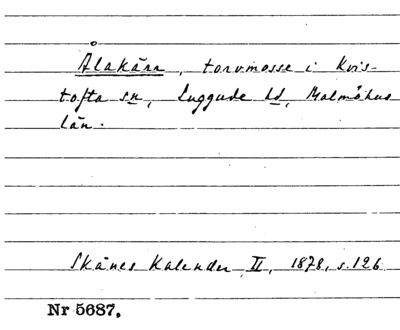 Ålakärr, torvmosse i Kvis-
tofta sn, Luggude hd, Malmöhus
län.
Skånes Kalender, II, 1878, s. 126
Nr 5687.